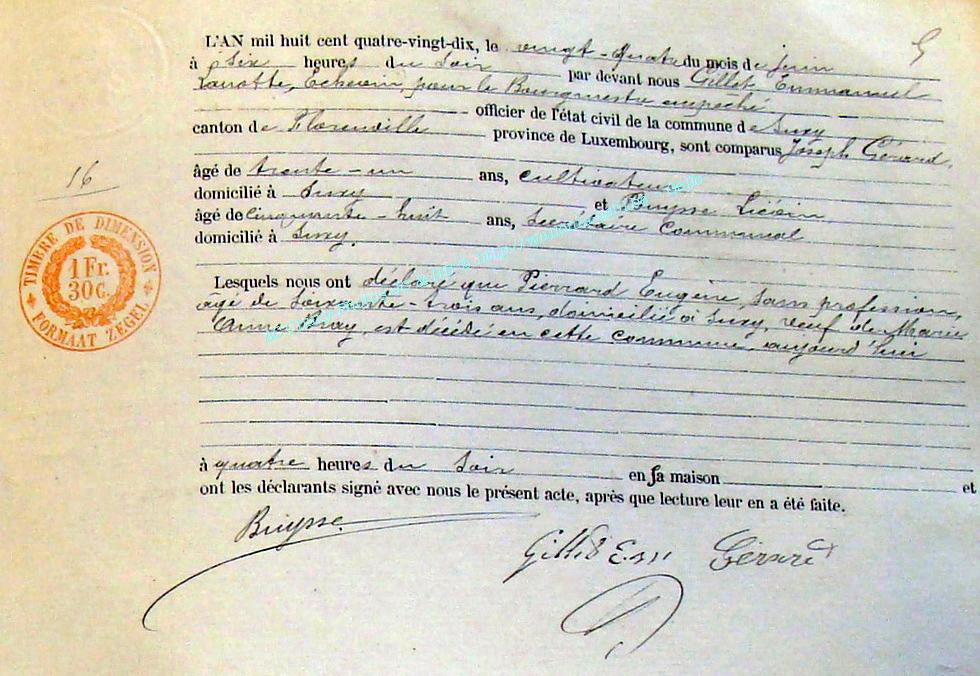 L'AN mil huit cent quatre-vingt-dix, le vingt-quatre du mois de juin
à six heures du soir par devant nous Gillet, Emmanuel
Echevin, pour le Bourgmestre empeché
officier de l'état civil de la commune de Suxy
canton de Florenville province de Luxembourg, sont comparus Joseph Gérard,
âgé de trente-un ans, cultivateur
domicilié à Suxy et Buysse
âgé de cinquante-huit ans, Secrétaire Communal
domicilié à Suxy.
Lesquels nous ont déclaré que Pierrard Eugène, sans profession,
agé de soixante-trois ans, domicilié à Suxy, veuf de Marie
Anne Bray, est décédé en cette commune, aujourd'hui
à quatre heures du soir en sa maison et
ont les déclarants signé avec nous le présent acte, après que lecture leur en a été faite.
Buysse
Gillet Em Gérard
16
TIMBRE DE DIMENSION
1 Fr.
30 c.
FORMAAT ZEGEL